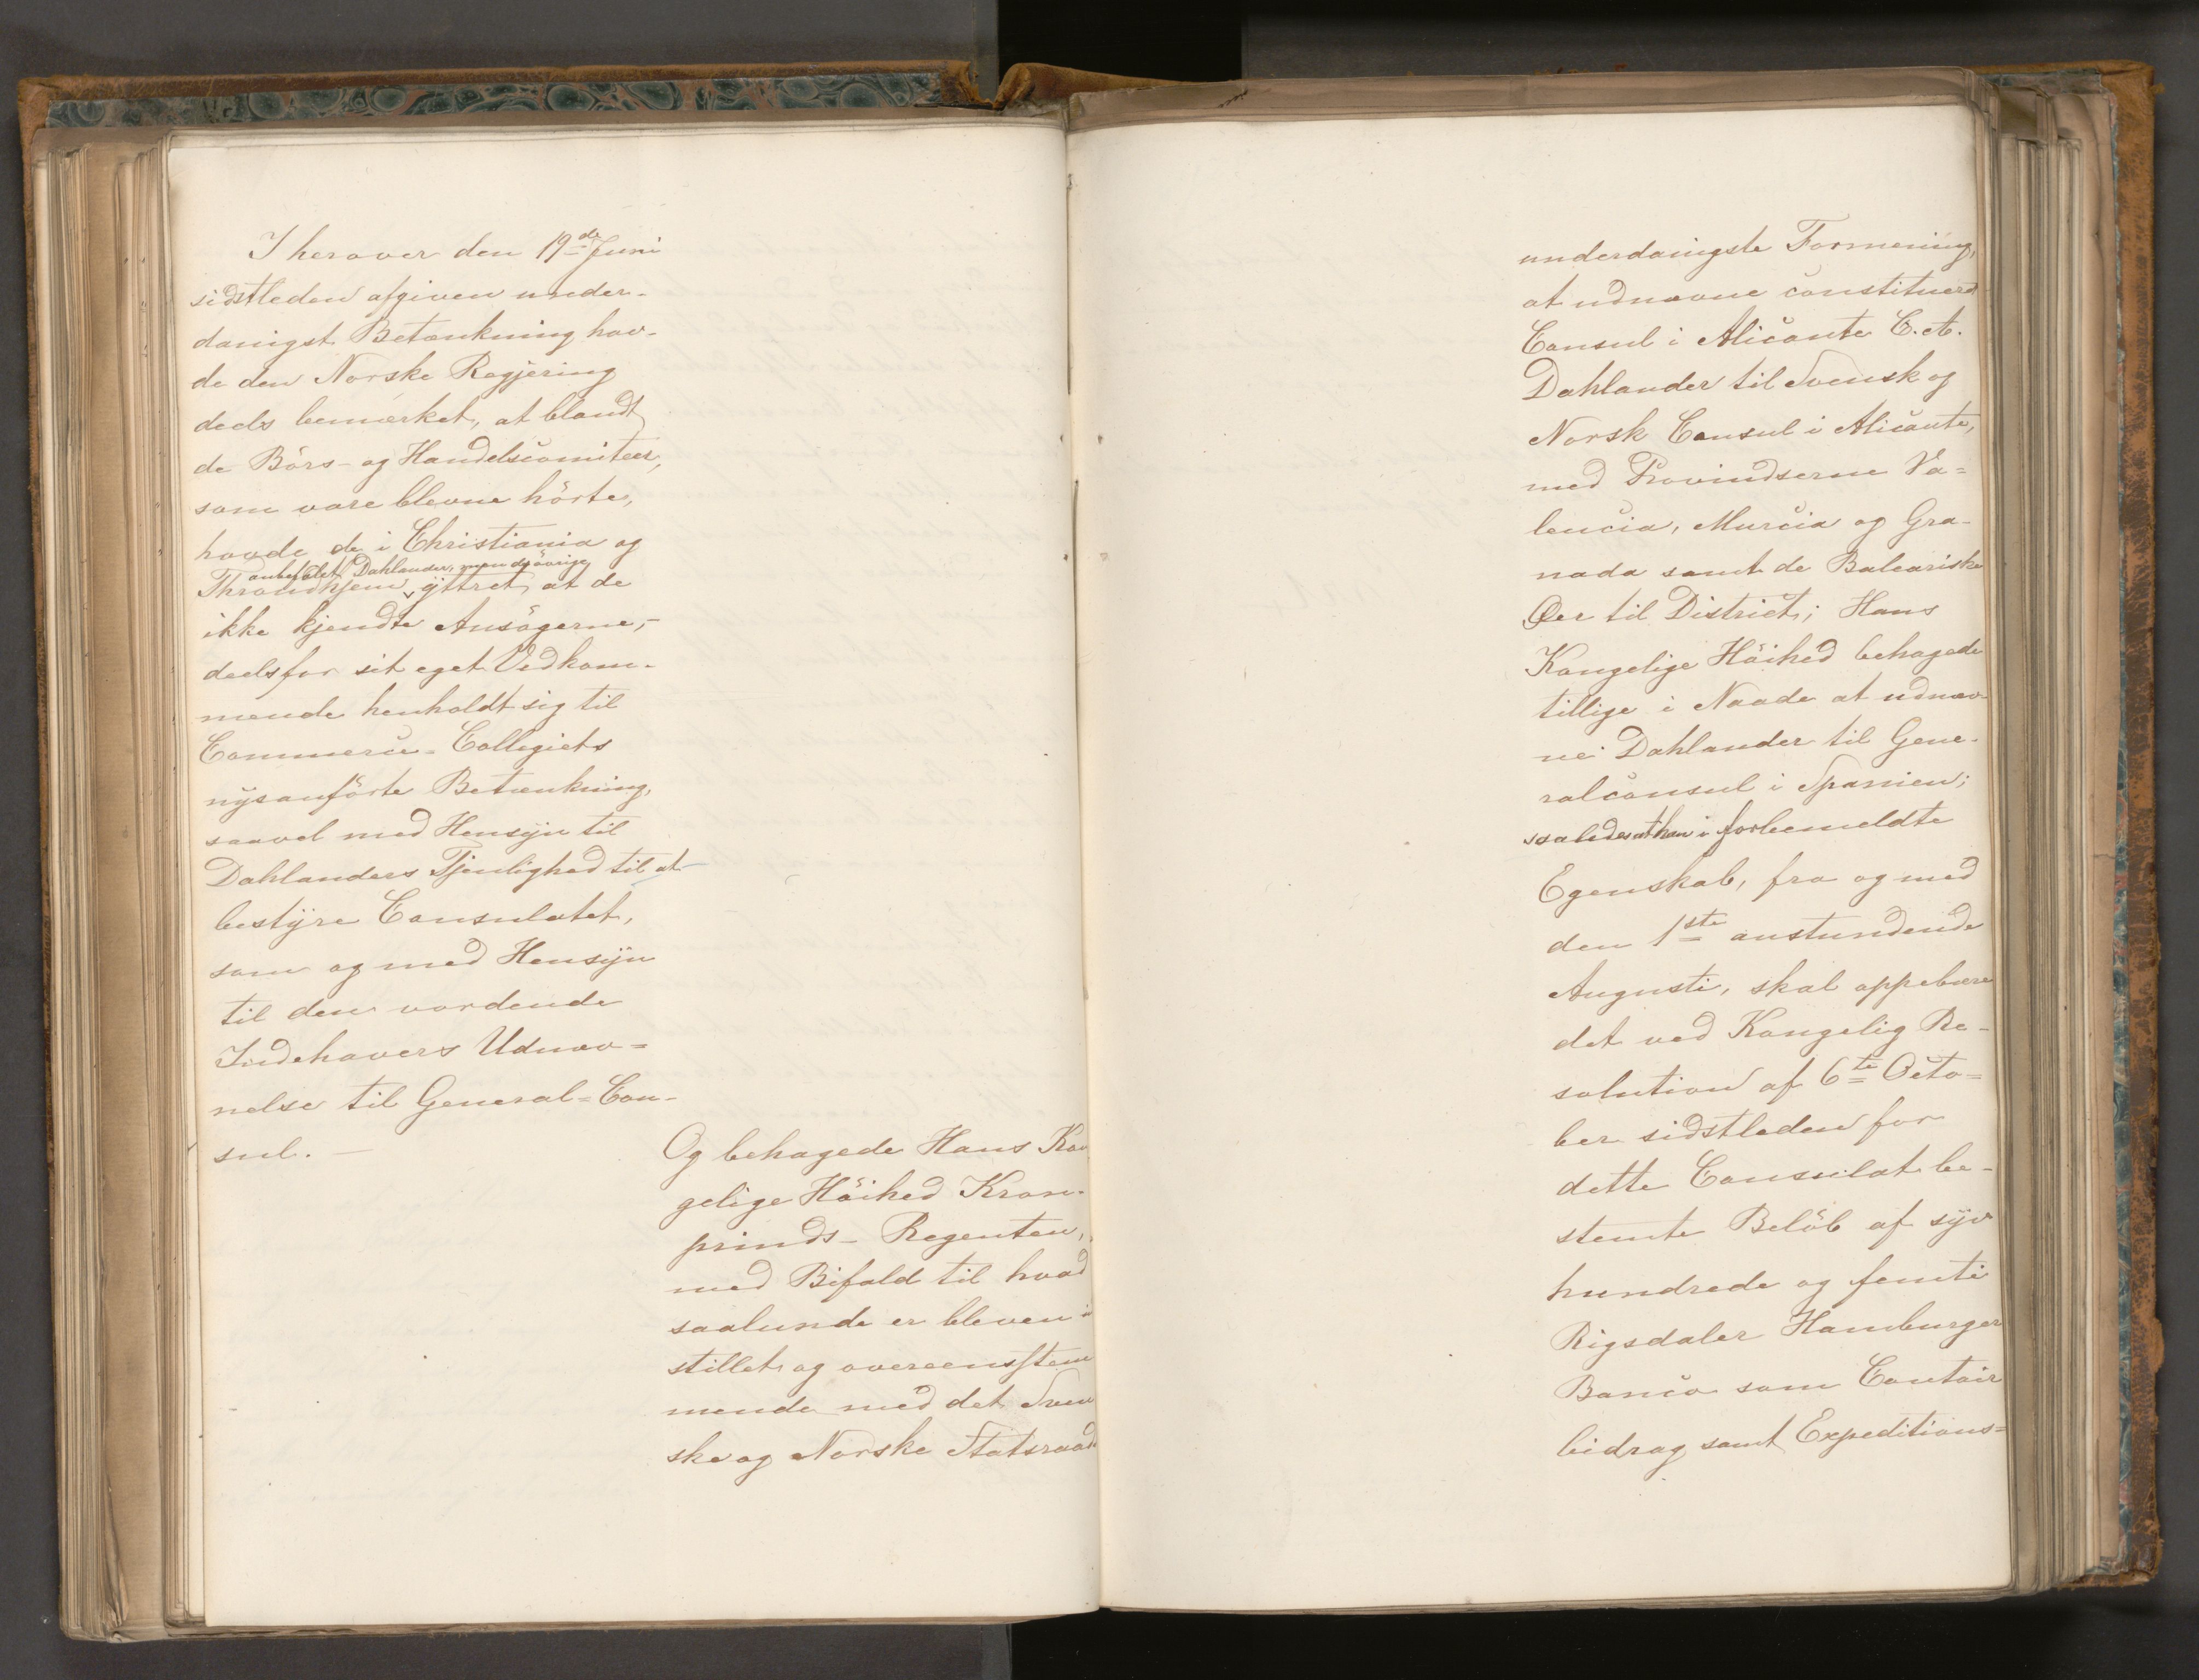 I herover den 19de Juni
sidstleden afgiven under-
danigst Betænkning hav-
de den Norske Regjering
deels bemærket, at blandt
de Börs- og Handelscomiteer,
som vare blevne hörte,
havde de i Christiania og
anbefalet Dahlander, men de övrige
Throndhjem yttret, at de
ikke kjendte Ansögerne,-
deels for sit eget Vedkom-
mende henholdt sig til
Commerce-Collegiets
nysanförte Betænkning,
saavel med Hensyn til
Dahlanders Tjenlighed til at
bestyre Consulatet,
som og med Hensyn
til den vordende
Indehavers Udnæv=
nelse til General=Con-
sul. —
Og behagede Hans Kon
gelige Höihed Kron-
prinds- Regenten,
med Bifald til hvad
saalunde er bleven in
stillet og overeensstem
mende med det Sven
ske og Norske Statsraads
underdanigste Formening,
at udnævne constituerd
Consul i Alicante C. A.
Dahlander til Svensk og
Norsk Consul i Alicante,
med Provindserne Va=
lencia, Murcia og Gra-
nada samt de Baleariske
Öer til District; Hans
Kongelige Höihed behagede
tillige i Naade at udnæv
ne Dahlander til Gene-
ralconsul i Spanien;
saaledes at han i forbemeldte
Egenskab, fra og med
den 1ste anstundende
Augusti, skal oppebære
det ved Kongelig Re-
solution af 6te Octo=
ber sidstleden for
dette Consulat be-
stemte Belöb af syv
hundrede og femti
Rigsdaler Hamburger
Banco som Contoir
bidrag samt Expeditions=